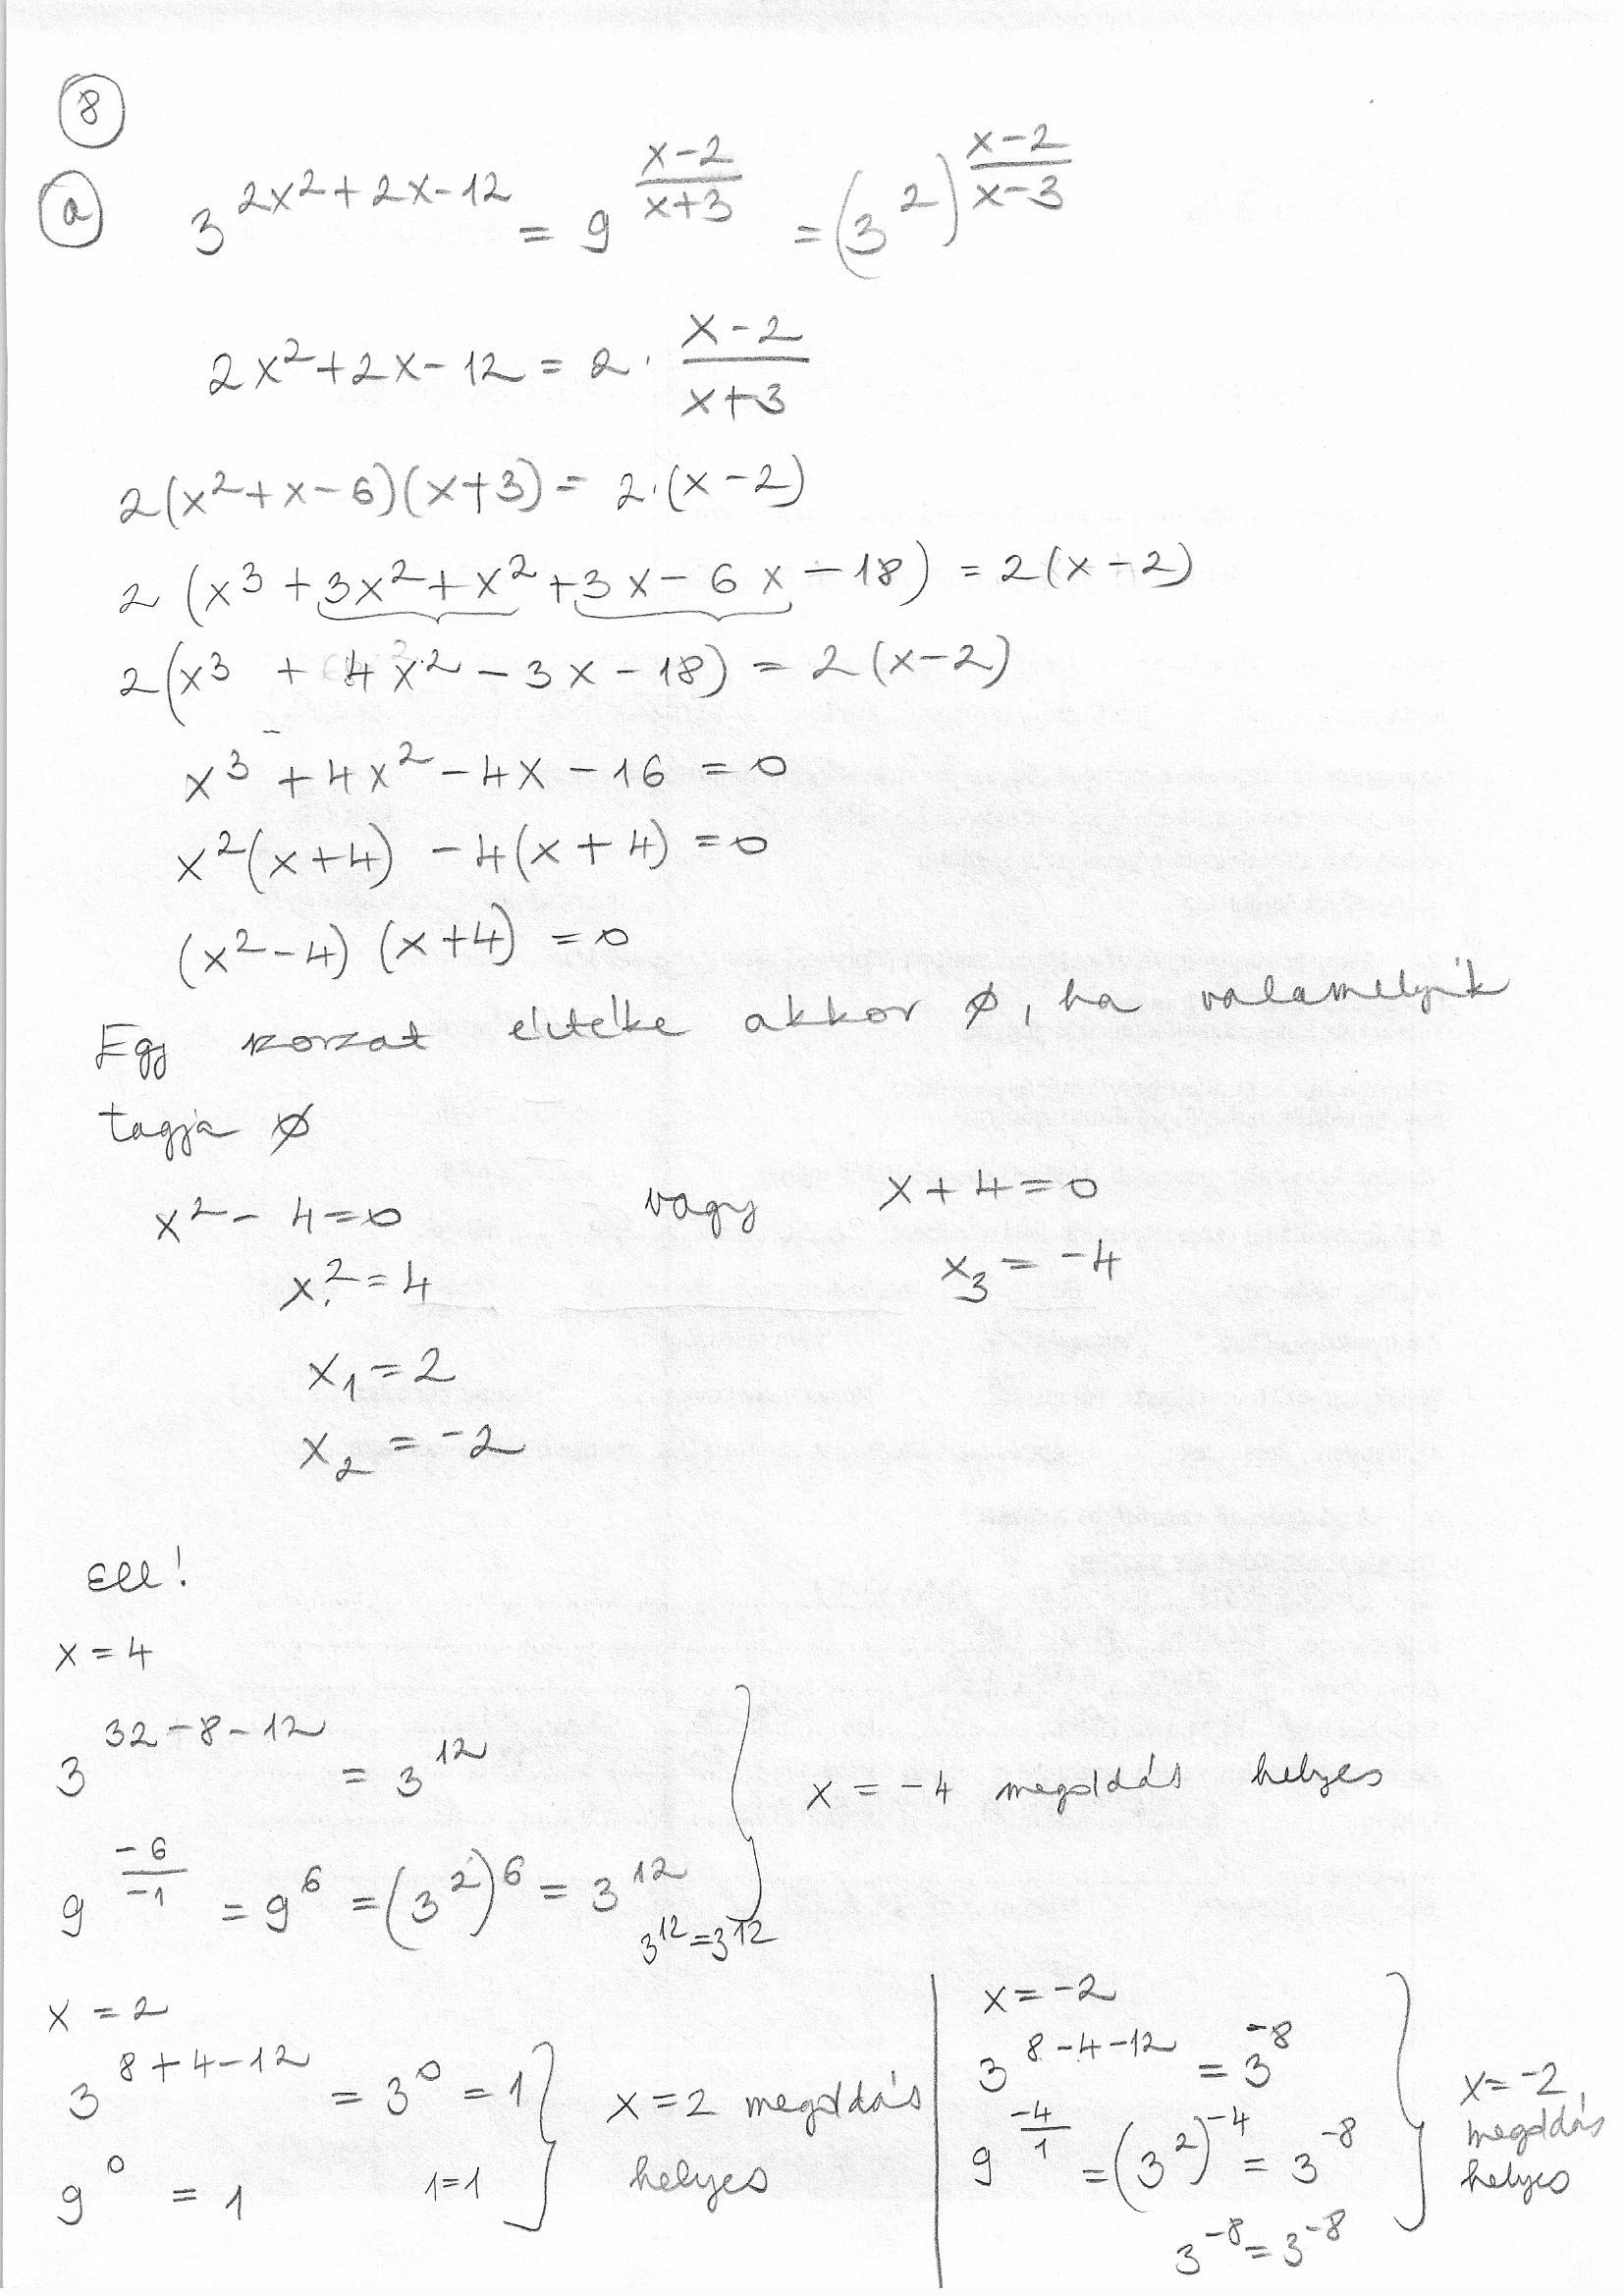 8
a) 3^(2x²+2x-12) = 9^((x-2)/(x+3)) = (3²)^((x-2)/(x-3))
2x²+2x-12 = 2 · (x-2)/(x+3)
2(x²+x-6)(x+3) = 2·(x-2)
2(x³+3x²+x²+3x-6x-18) = 2(x-2)
2(x³ + 4x² - 3x - 18) = 2(x-2)
x³ + 4x² - 4x - 16 = 0
x²(x+4) - 4(x+4) = 0
(x²-4) (x+4) = 0
Egy szorzat értéke akkor ∅, ha valamelyik
tagja ∅
x² - 4 = 0 vagy x + 4 = 0
x² = 4 x₃ = -4
x₁ = 2
x₂ = -2
Ell!
x = 4
3^(32-8-12) = 3^12
x = -4 megoldás helyes
9^(-6/-1) = 9^6 = (3²)^6 = 3^12
3^12 = 3^12
x = 2
3^(8+4-12) = 3^0 = 1
9^0 = 1 1=1
x = 2 megoldás
helyes
x = -2
3^(8-4-12) = 3^-8
9^(-4/1) = (3²)^-4 = 3^-8
3^-8 = 3^-8
x = -2
megoldás
helyes